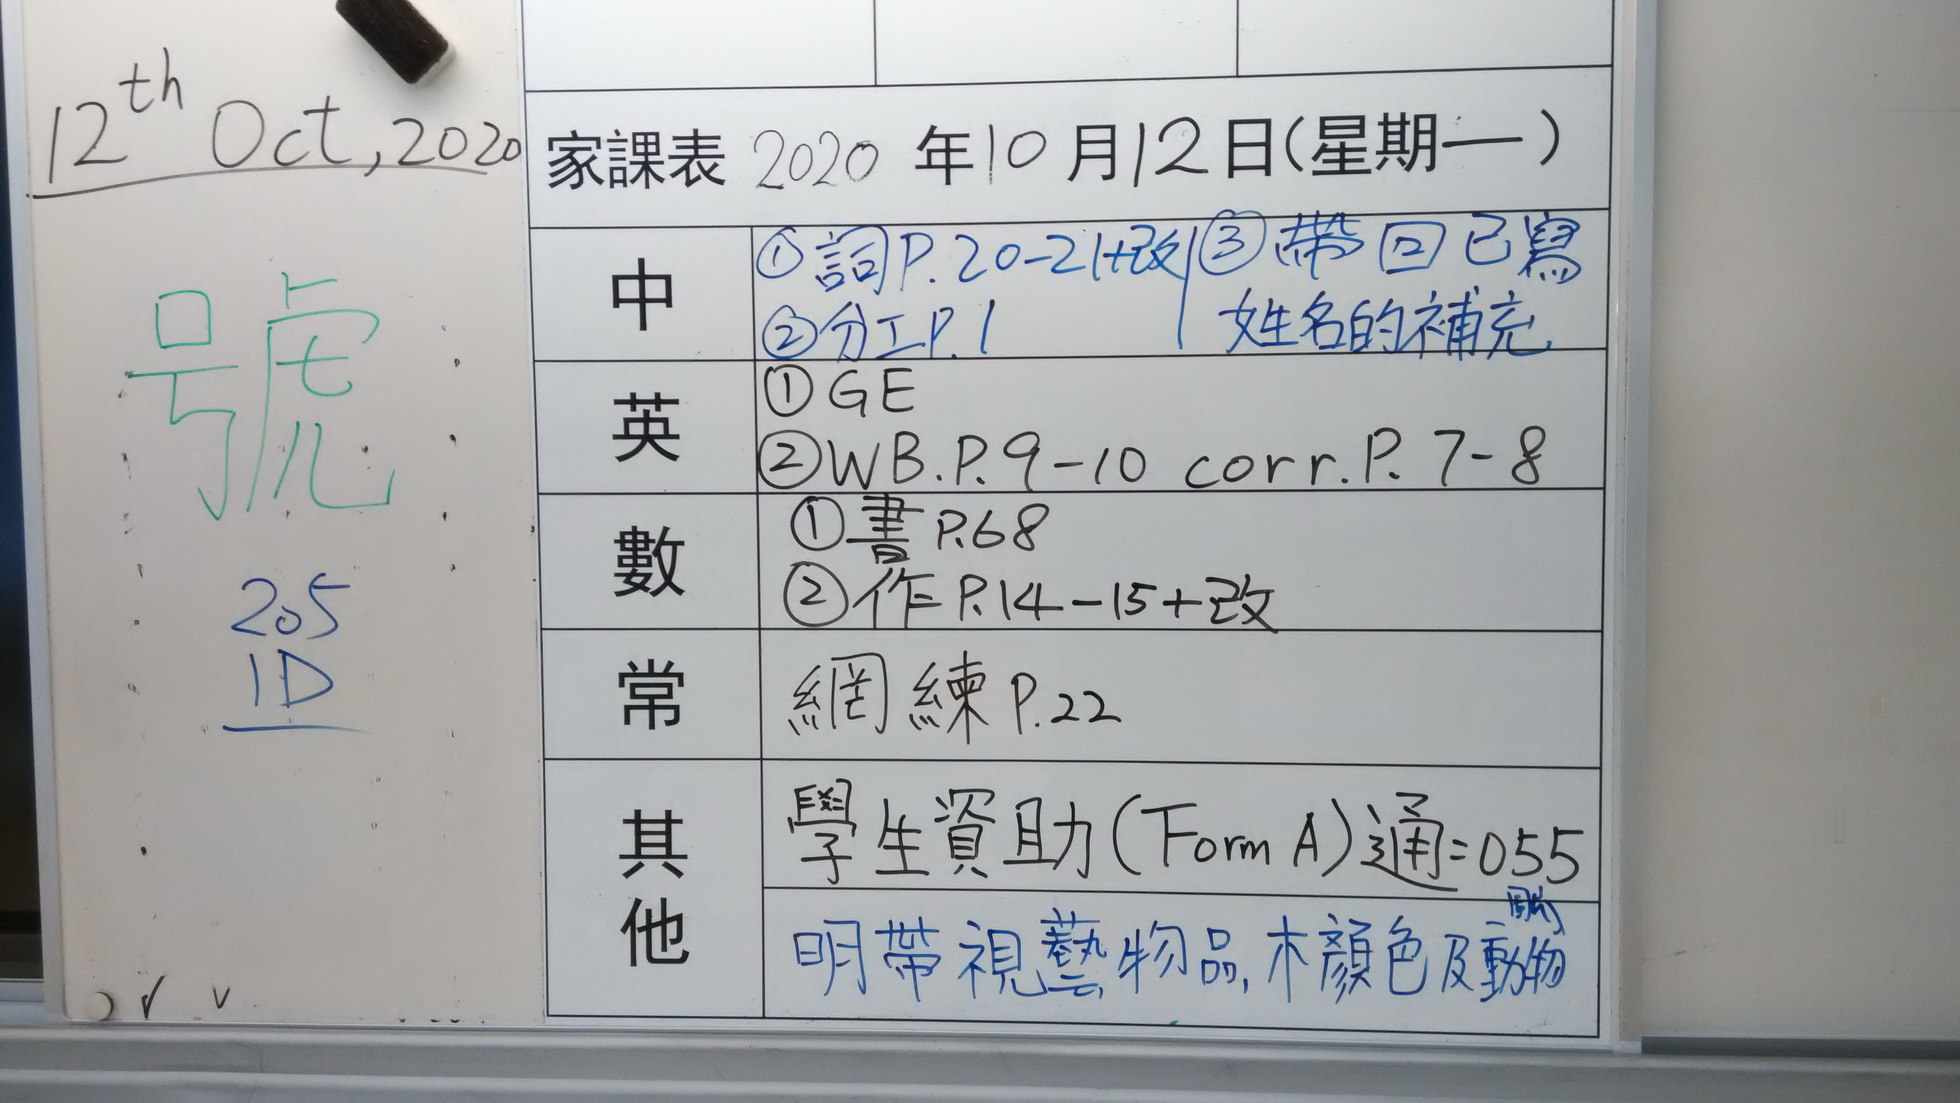 12th Oct, 2020
號
205
1D
家課表 2020 年 10 月 12 日(星期一)
中
① 詞 P. 20-21+改
② 分工 P. 1
③ 帶回已寫
姓名的補充
英
① GE
② WB. P. 9-10 corr. P. 7-8
數
① 書 P.68
② 作 P.14-15+改
常
網練 P.22
其他
學生資助(Form A)通=055
明帶視藝物品,木顏色及動物